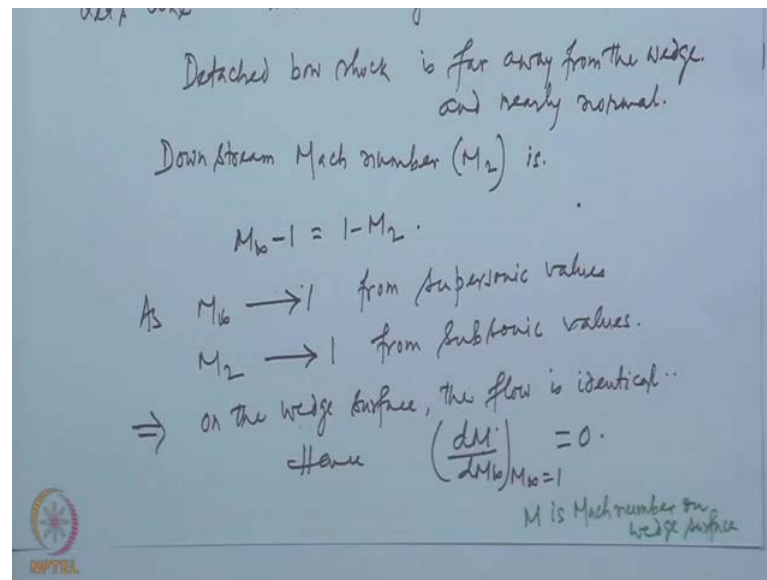 Detached bow shock is far away from the wedge.
and nearly normal.
Down stream Mach number (M₂) is.
M∞-1 = 1-M₂.
As M∞ → 1 from supersonic values
M₂ → 1 from subsonic values.
⇒ on the wedge surface, the flow is identical..
Hence (dM/dM∞)M∞=1 = 0.
M is Mach number on
wedge surface
NPTEL